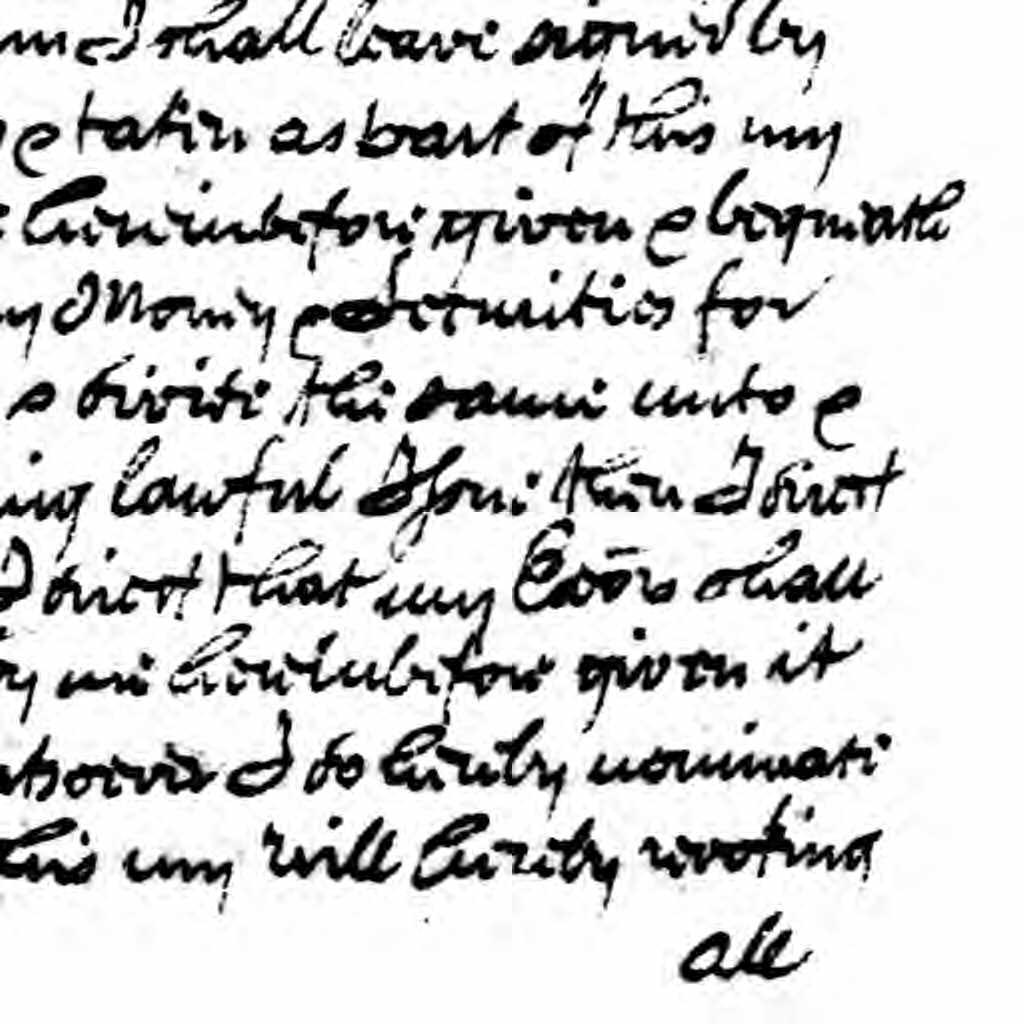 I shall leave signed by
& taken as part of this my
hereinbefore given & bequeath
Money & Securities for
devise the same unto &
lawful Issue then I direct
I direct that my Exōrs shall
by me hereinbefore given it
I do hereby nominate
this my Will hereby revoking
all